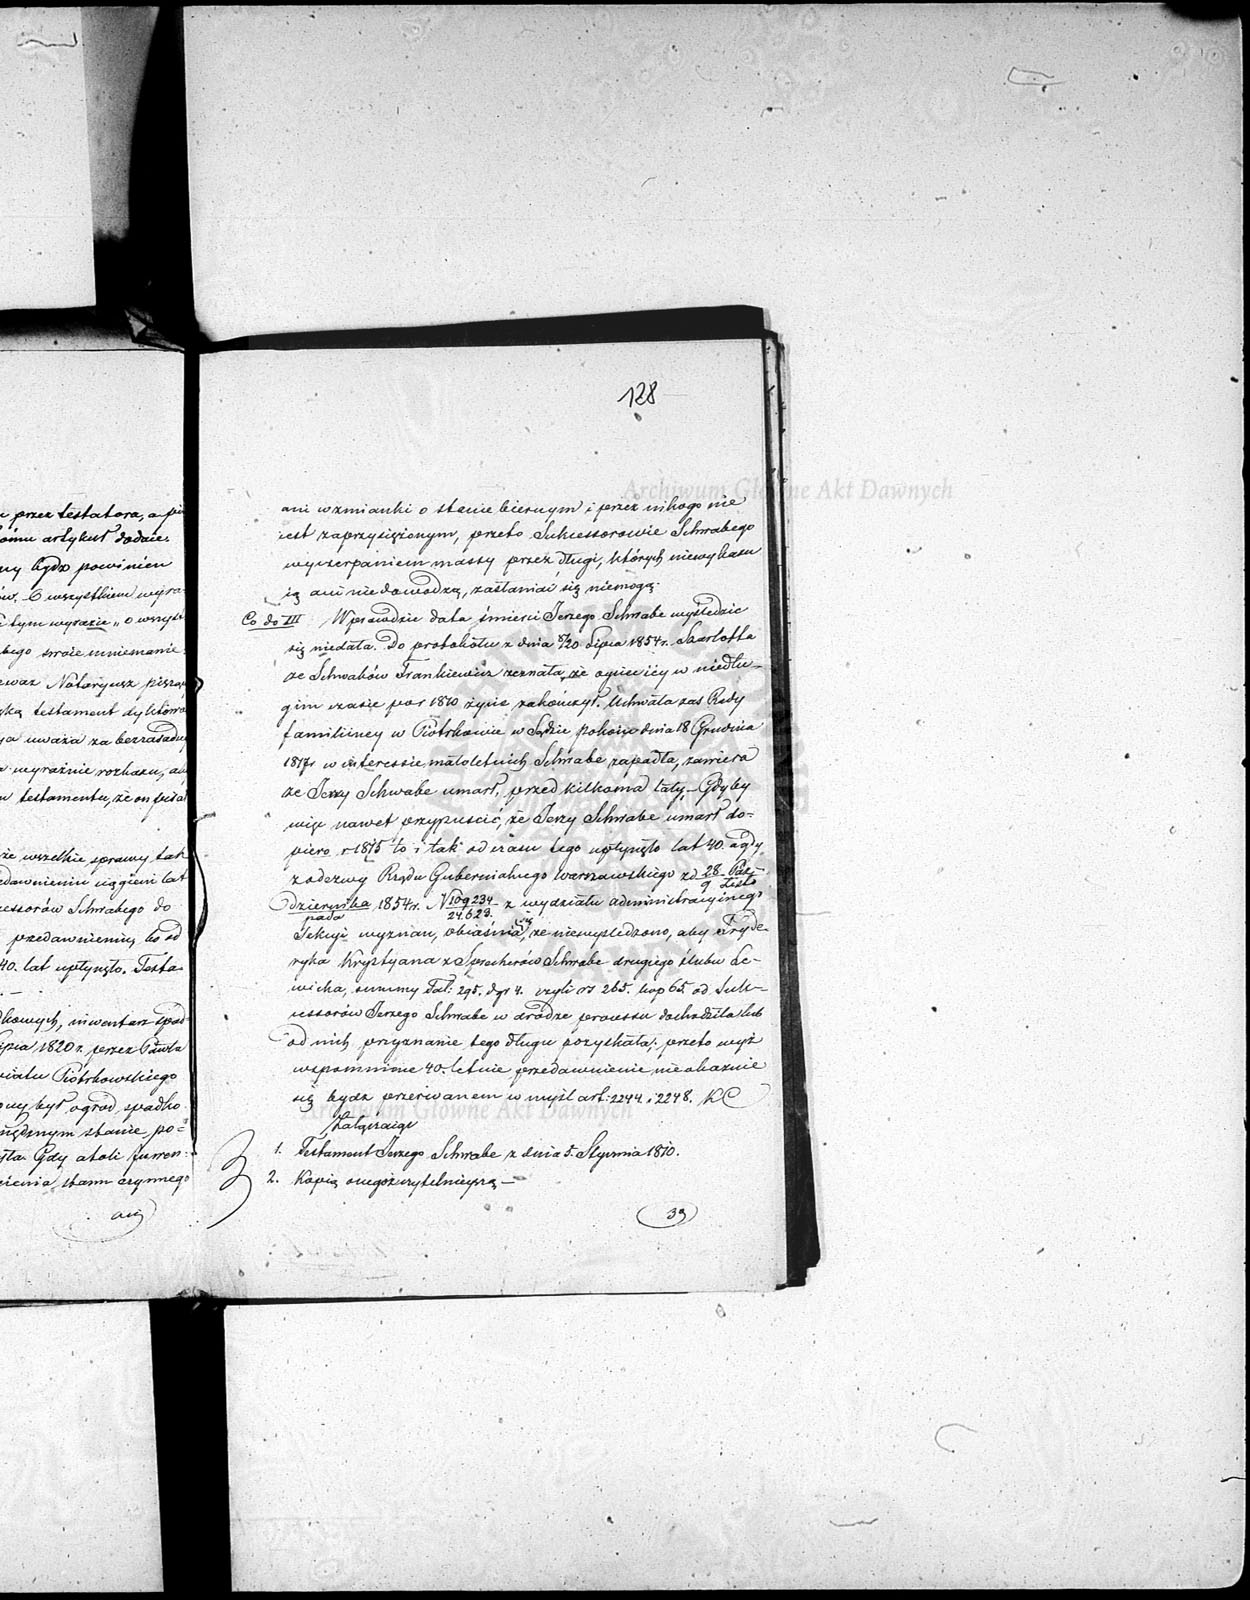 przez testatora, a
artykuł dodaie
bydź powinien
wszystkiem wyra-
tym wyrazie „o wszyst
swoie mniemanie
Notaryusz pisząc
testament dyktowa
uważa za bezzasadny
wyraźnie rozkazu,
testamentu, że on pisał
że wszelkie sprawy tak
ciągiem lat
cessorów Schwabego do
przedawnieniu, bo od
40. lat upłynęło. Testa-
inwentarz spad-
1820 r. przez Pawła
Piotrkowskiego
był ogrod spadko-
stanie po-
Gdy atoli
stanu czynnego
ani
128
ani wzmianki o stanie biernym i przez nikogo nie
iest zaprzysiężonym, przeto Sukcessorowie Schwabego
wyczerpaniem massy przez długi, których niewykazu
ią ani niedowodzą, zasłaniać się niemogą.
Co do III Wprawdzie data śmierci Jerzego Schwabe wyśledzić
się niedała. Do protokołu z dnia 8/20 Lipca 1854 r. Szarlotta
ze Schwabów Frankiewicz zeznała, że ojciec iey w niedłu-
gim czasie po r 1810 życie zakończył. Uchwała zas Rady
familiiney w Piotrkowie w Sądzie pokoiu dnia 18 Grudnia
1817r w interessie małoletnich Schwabe zapadła, zawiera
że Jerzy Schwabe umarł przed kilkoma laty. Gdyby
więc nawet przypuscić, że Jerzy Schwabe umarł do-
piero r 1815 to i tak od czasu tego upłynęło lat 40. a gdy
z odezwy Rządu Gubernialnego Warszawskiego zd 28 Paź-
9 Listo
dziernika 1854 r. N 109234 z wydziału administracyinego
pada 24.623.
Sekcyi wyznań, obiaśnia się, że niewyśledzono, aby Fryde-
ryka Krystyana z Sprecherów Schwabe drugiego ślubu Le-
wicka, summy Tal: 295. dgr 4. czyli rs 265. kop 65. od Suk-
cessorów Jerzego Schwabe w drodze processu dochodziła lub
od nich przyznanie tego długu pozyskała; przeto wyż
wspomnione 40. letnie przedawnienie nieokazuie
się bydz przerwanem w myśl art: 2244. i 2248. KC
Załączaiąc
1. Testament Jerzego Schwabe z dnia 5. Stycznia 1810.
2. Kopią onegoż czytelnieyszą —
39
Archiwum Główne Akt Dawnych
Archiwum Główne Akt Dawnych